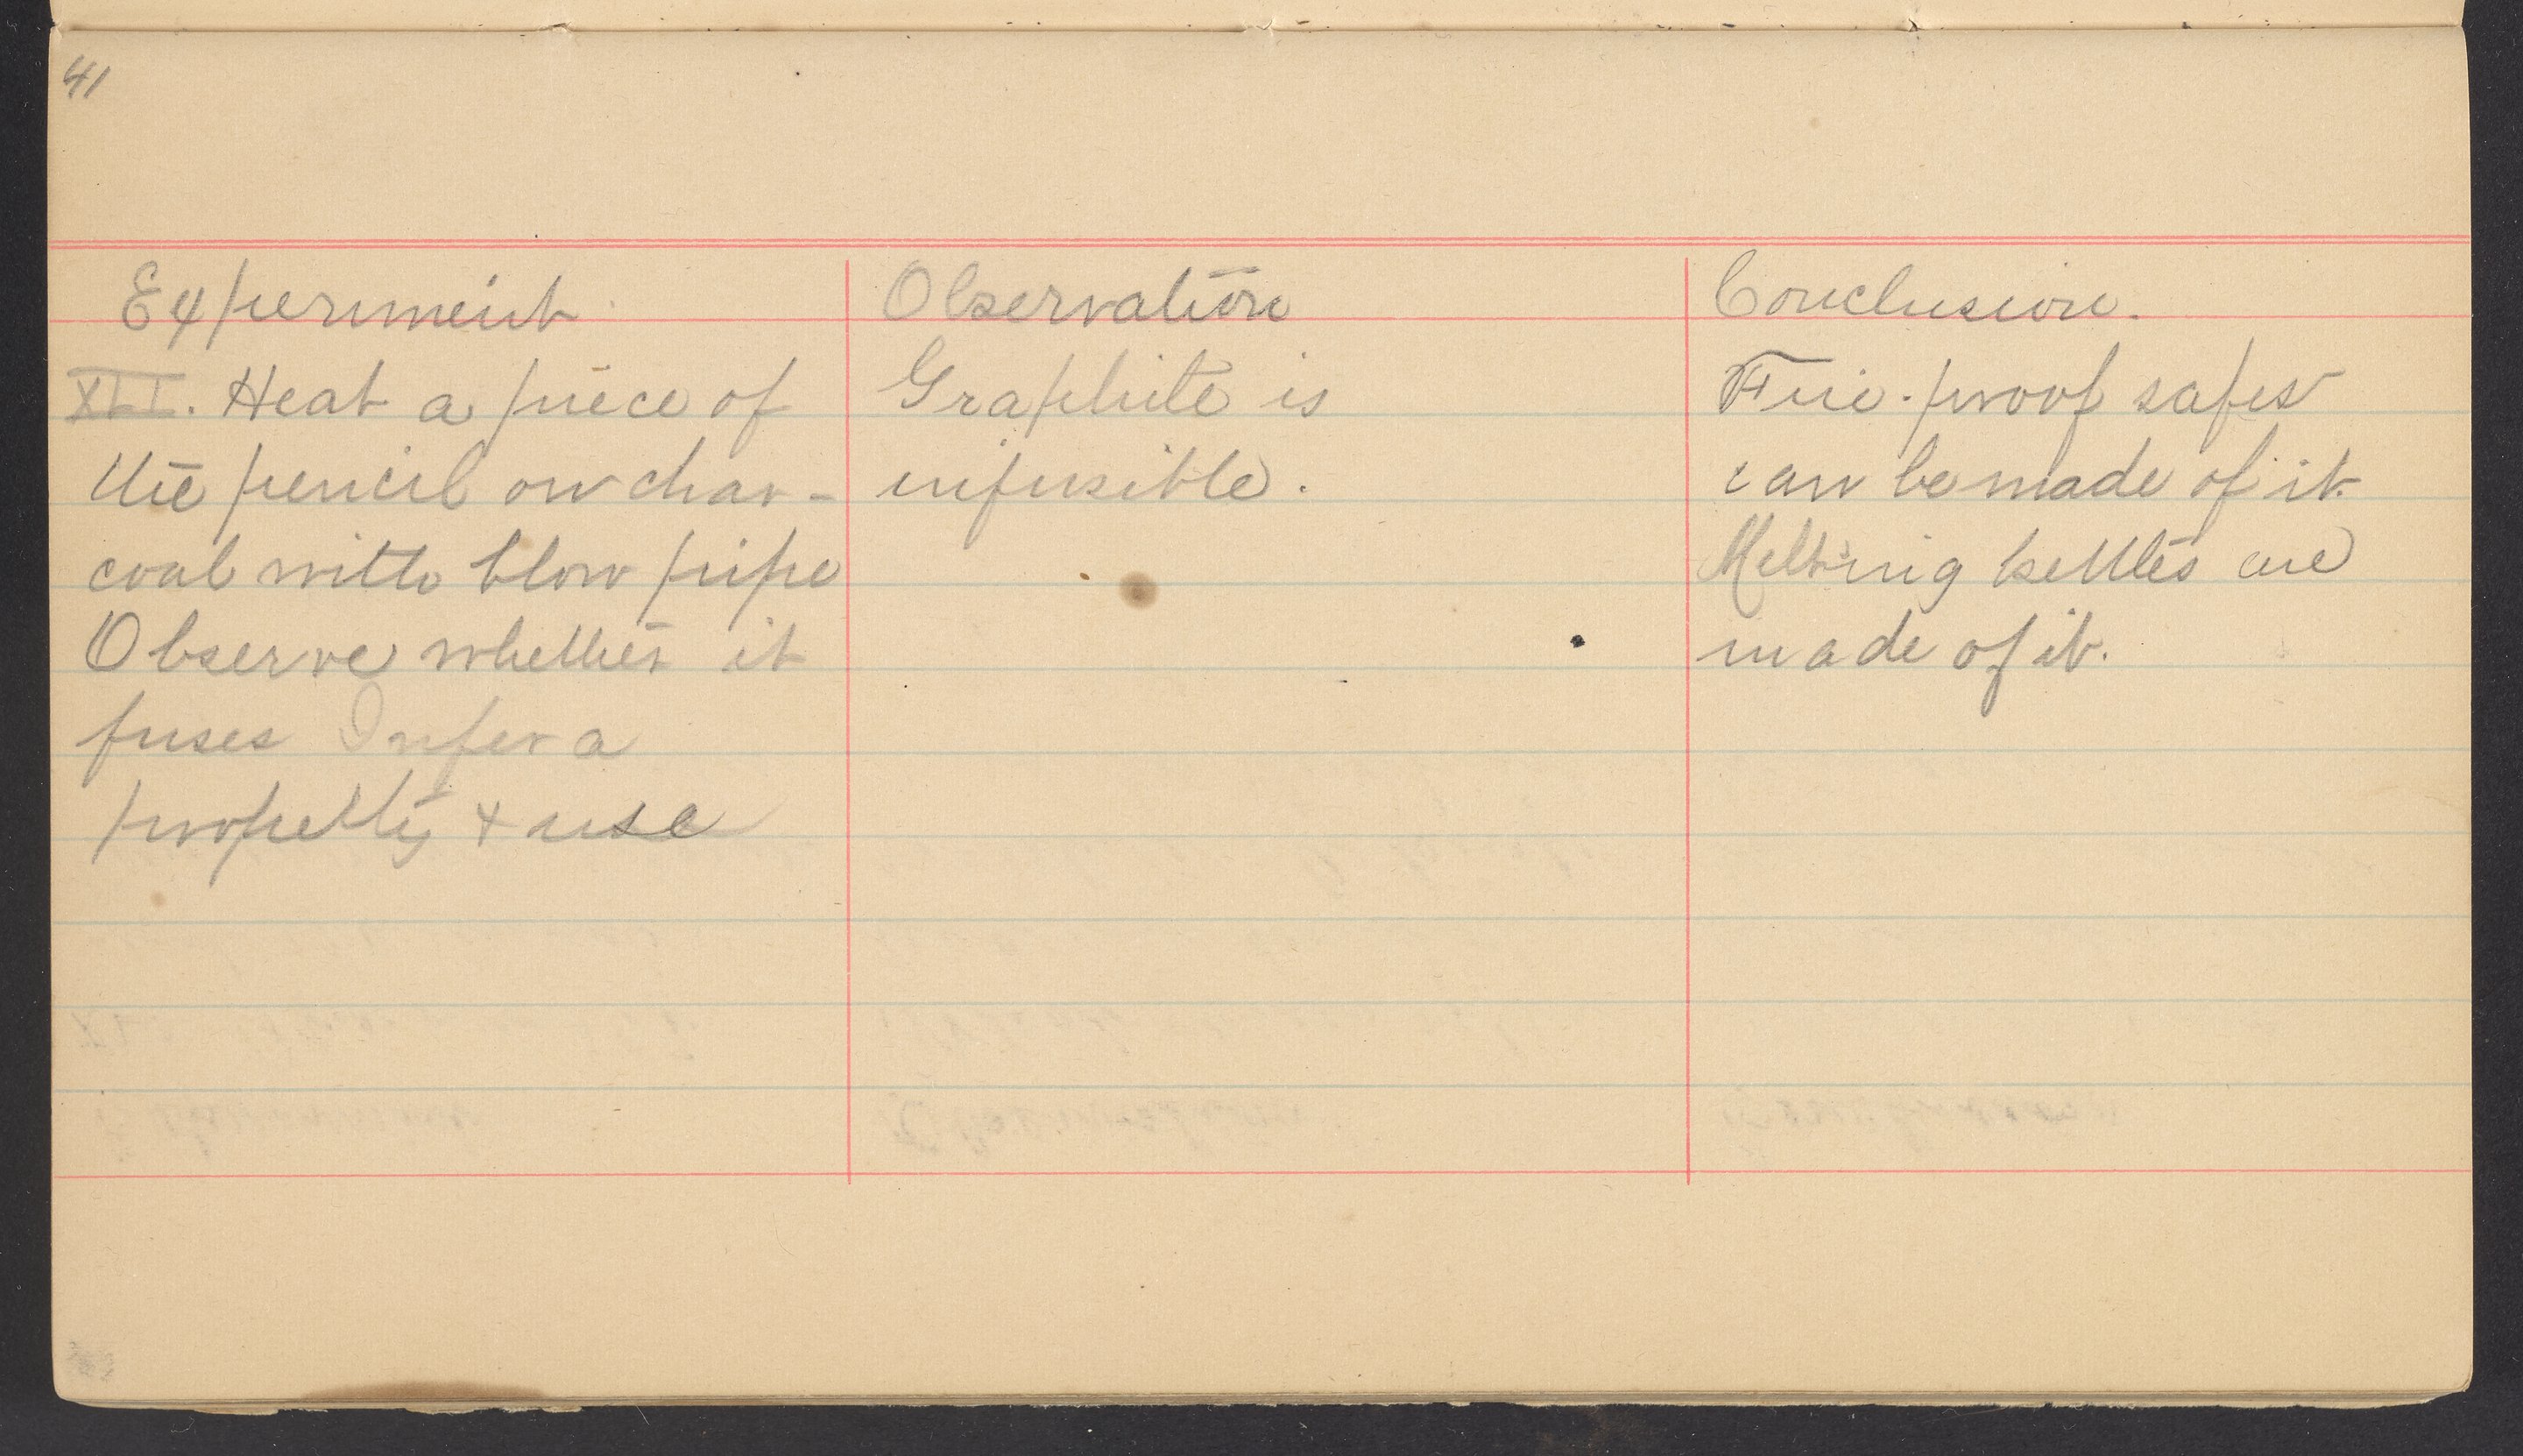 41
Experiment
XLI. Heat a piece of
the pencil on char-
coal with blow pipe
Observe whether it
fuses Infer a
property & use
Observation
Graphite is
infusible.
Conclusion.
Fire-proof safes
can be made of it.
Melting kettles are
made of it.